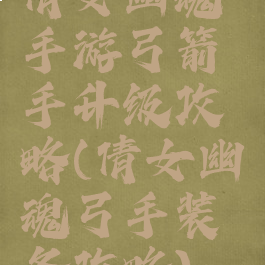 倩女幽魂
手游弓箭
手升级攻
略(倩女幽
魂弓手装
备攻略)